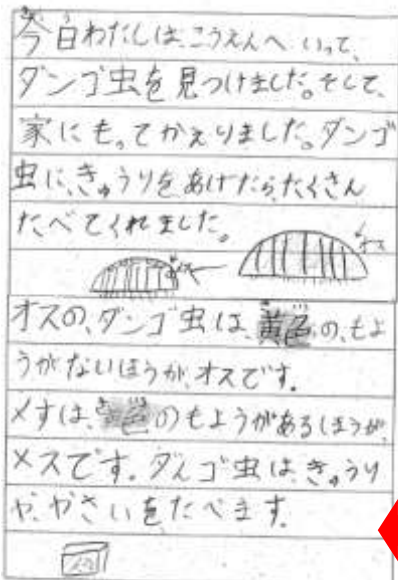 今日わたしは、こうえんへ いって、
ダンゴ虫を見つけました。そして、
家にもってかえりました。ダンゴ
虫に、きゅうりをあげたら、たくさん
たべてくれました。
メス
オス
オスの、ダンゴ虫は、黄色の、もよ
うがないほうが、オスです。
メすは、黄色のもようがあるほうが、
メスです。ダんゴ虫は、きゅうり
や、やさいをたべます。